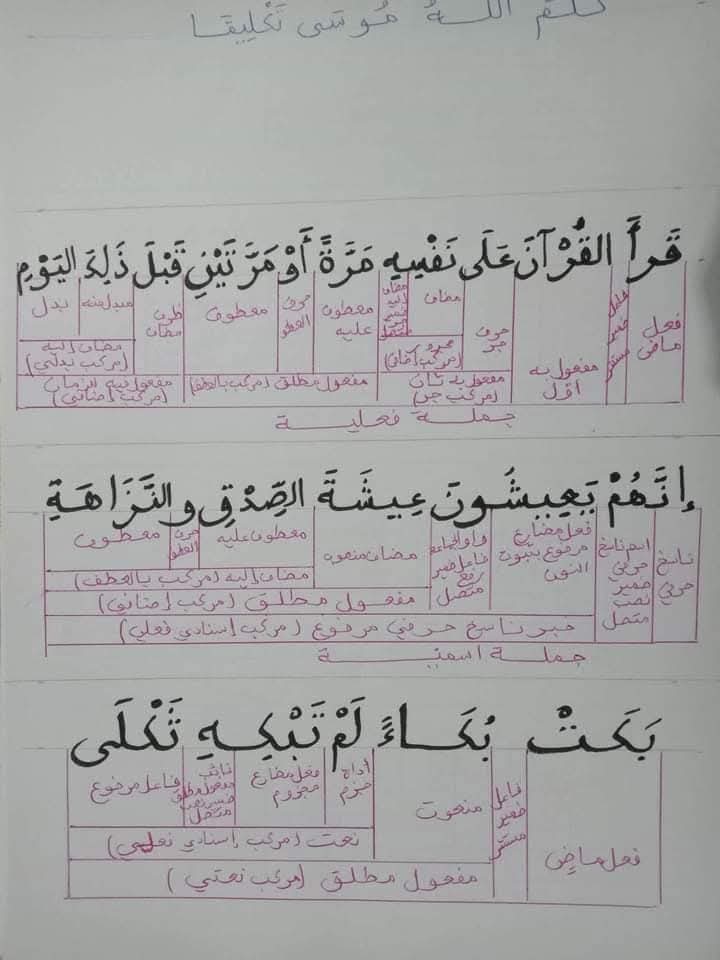 كلّم اللهُ مُوسَى تَكْلِيمًا
قَرأَ القُرْآنَ عَلَى نَفْسِهِ مَرَّةً أَوْ مَرَّتَيْنِ قَبْلَ ذَلِكَ اليَوْمِ
فعل ماض فاعل ضمير مستتر مفعول به أول حرف جر مضاف مضاف إليه ضمير جر متصل معطوف عليه حرف العطف معطوف ظرف مضاف مبدل منه بدل
مجرور (مركب إضافي) مضاف إليه (مركب بدلي)
مفعول به ثان (مركب جر) مفعول مطلق (مركب بالعطف) مفعول فيه للزمان (مركب إضافي)
جملة فعلية
إنَّهُمْ يَعِيشُونَ عِيشَةَ الصِّدْقِ والنَّزَاهَةِ
ناسخ حرفي اسم ناسخ حرفي ضمير نصب متصل فعل مضارع مرفوع بثبوت النون واو الجماعة فاعل ضمير رفع متصل مضاف منعوه معطوف عليه حرف العطف معطوف
مضاف إليه (مركب بالعطف)
مفعول مطلق (مركب إضافي)
خبر ناسخ حرفي مرفوع (مركب إسنادي فعلي)
جملة اسمية
بَكَتْ بُكَاءً لَمْ تَبْكِهِ ثَكْلَى
فعل ماضٍ فاعل ضمير مستتر منعوت أداة جزم فعل مضارع مجزوم نائب مفعول مطلق ضمير نصب متصل فاعل مرفوع
نعت (مركب إسنادي فعلي)
مفعول مطلق (مركب نعتي)